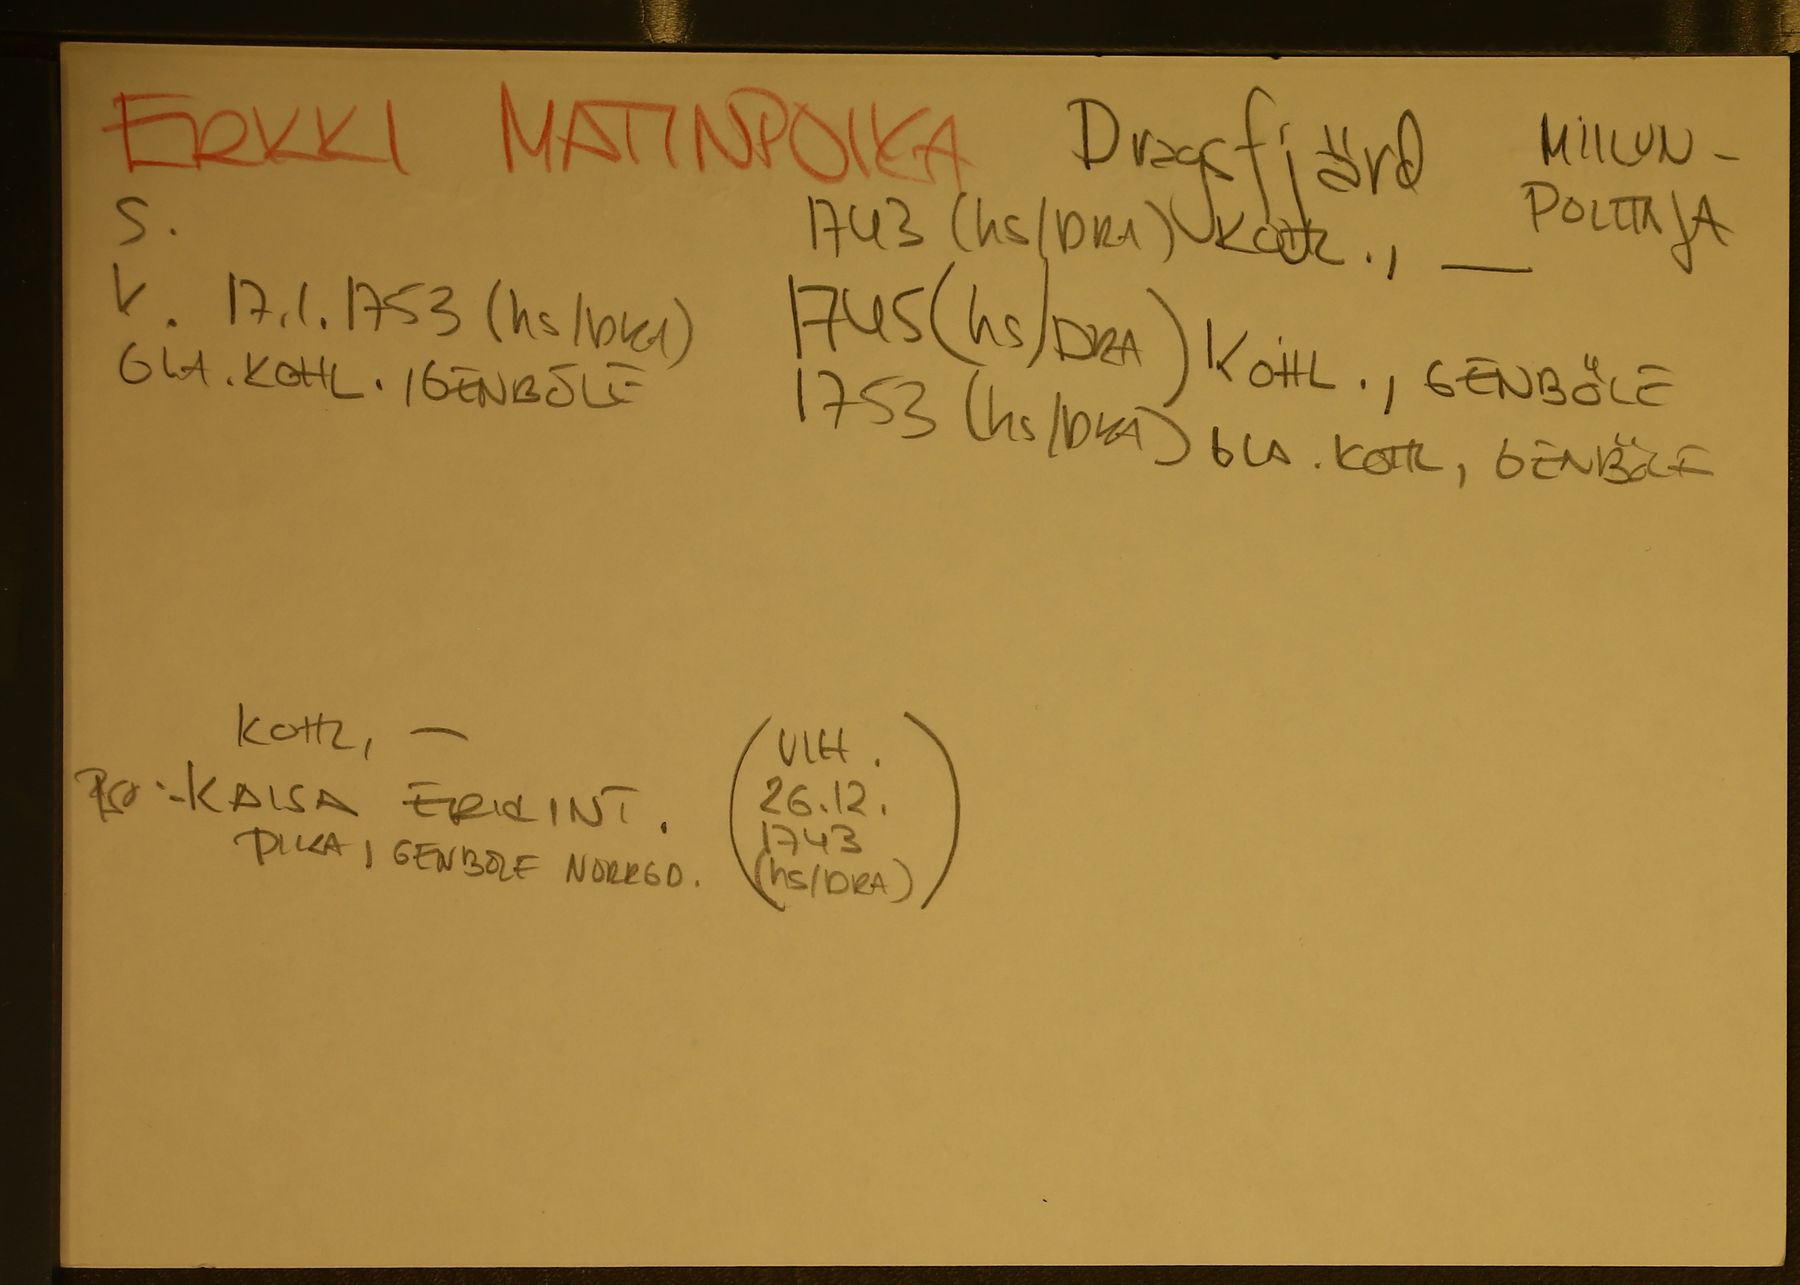 ERKKI MATINPOIKA Dragsfjärd MIILUN-
POLTTAJA
S. 1743 (hs/DRA) KOHL., —
K. 17.1.1753 (hs/DRA) 1745 (hs/DRA) KOHL., GENBÖLE
GLA. KOHL., GENBÖLE 1753 (hs/DRA) GLA. KOHL, GENBÖLE
KOHL, —
PSO :- KAISA ERKINT. (VIH.
26.12.
1743
(hs/DRA))
PIKA, GENBÖLE NORRGD.